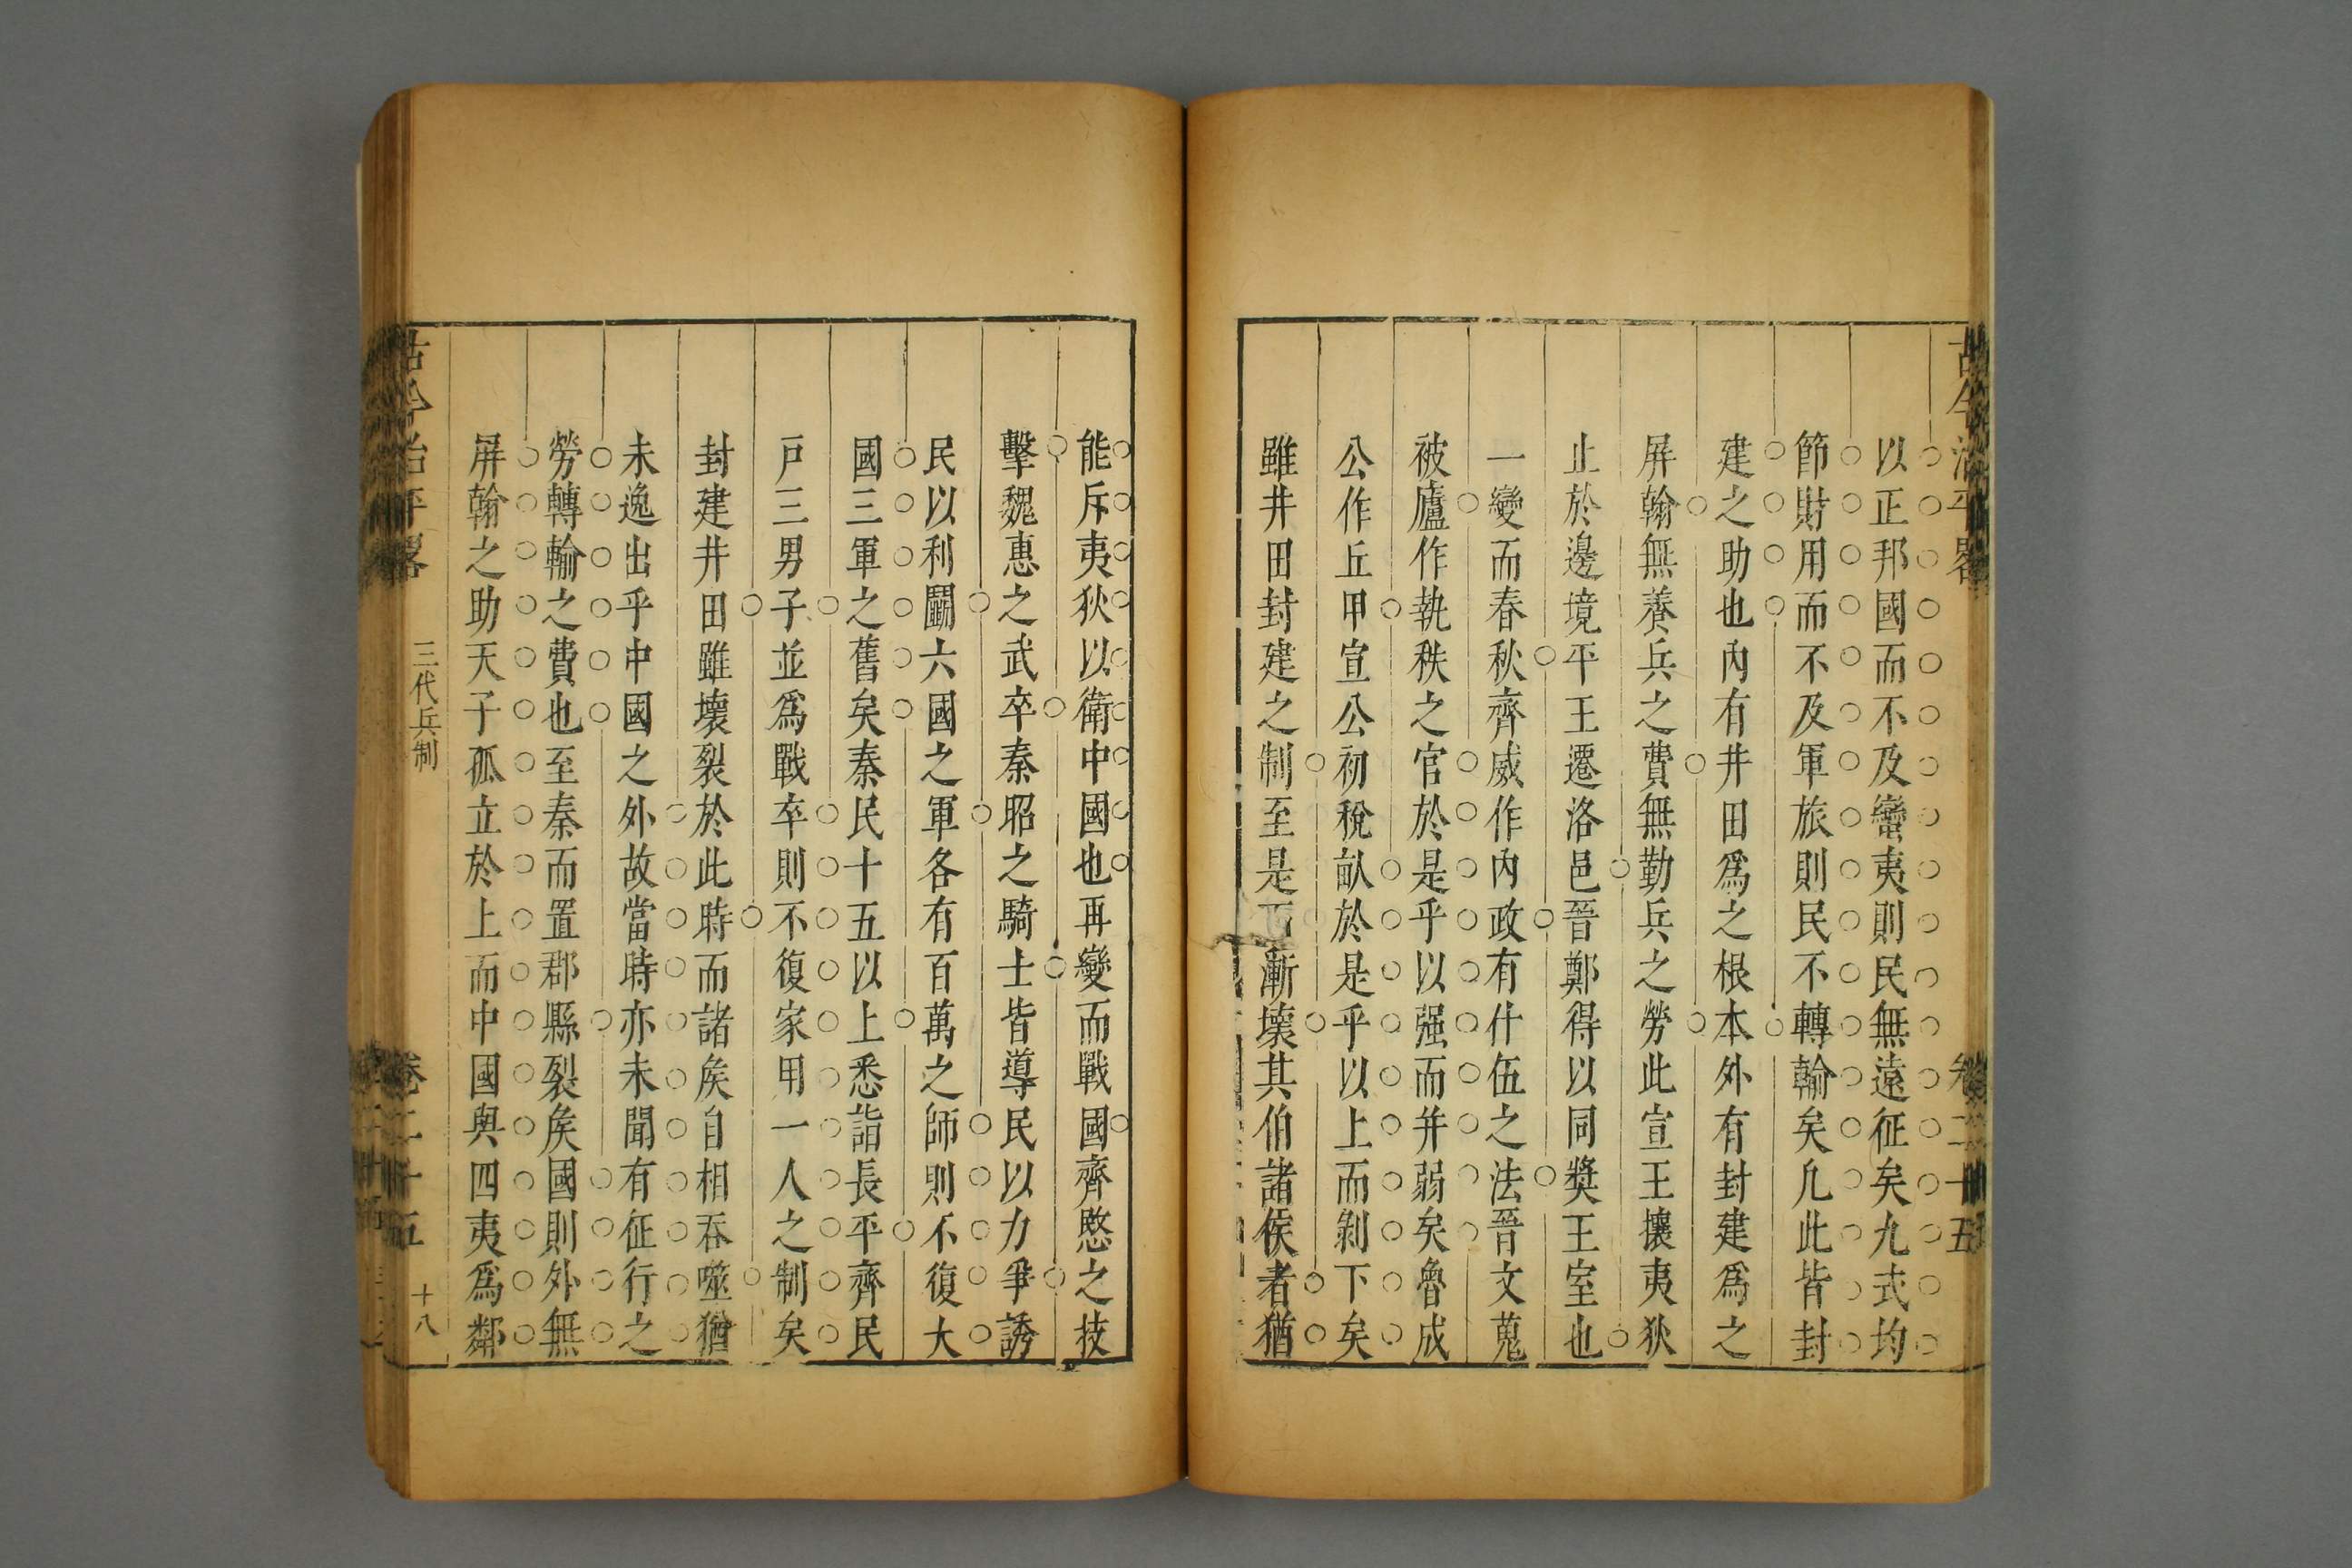 古今治平畧
卷二十五
以正邦國而不及蠻夷則民無遠征矣九式均
節財用而不及軍旅則民不轉輸矣凡此皆封
建之助也內有井田爲之根本外有封建爲之
屏翰無養兵之費無勤兵之勞此宣王攘夷狄
止於邊境平王遷洛邑晉鄭得以同獎王室也
一變而春秋齊威作內政有什伍之法晉文蒐
被廬作執秩之官於是乎以强而并弱矣魯成
公作丘甲宣公初稅畝於是乎以上而剝下矣
雖井田封建之制至是而漸壞其伯諸侯者猶
能斥夷狄以衛中國也再變而戰國齊愍之技
擊魏惠之武卒秦昭之騎士皆導民以力爭誘
民以利鬭六國之軍各有百萬之師則不復大
國三軍之舊矣秦民十五以上悉詣長平齊民
戶三男子並爲戰卒則不復家用一人之制矣
封建井田雖壞裂於此時而諸矦自相吞噬猶
未逸出乎中國之外故當時亦未聞有征行之
勞轉輸之費也至秦而置郡縣裂矦國則外無
屏翰之助天子孤立於上而中國與四夷爲鄰
古今治平畧
三代兵制
卷二十五
十八